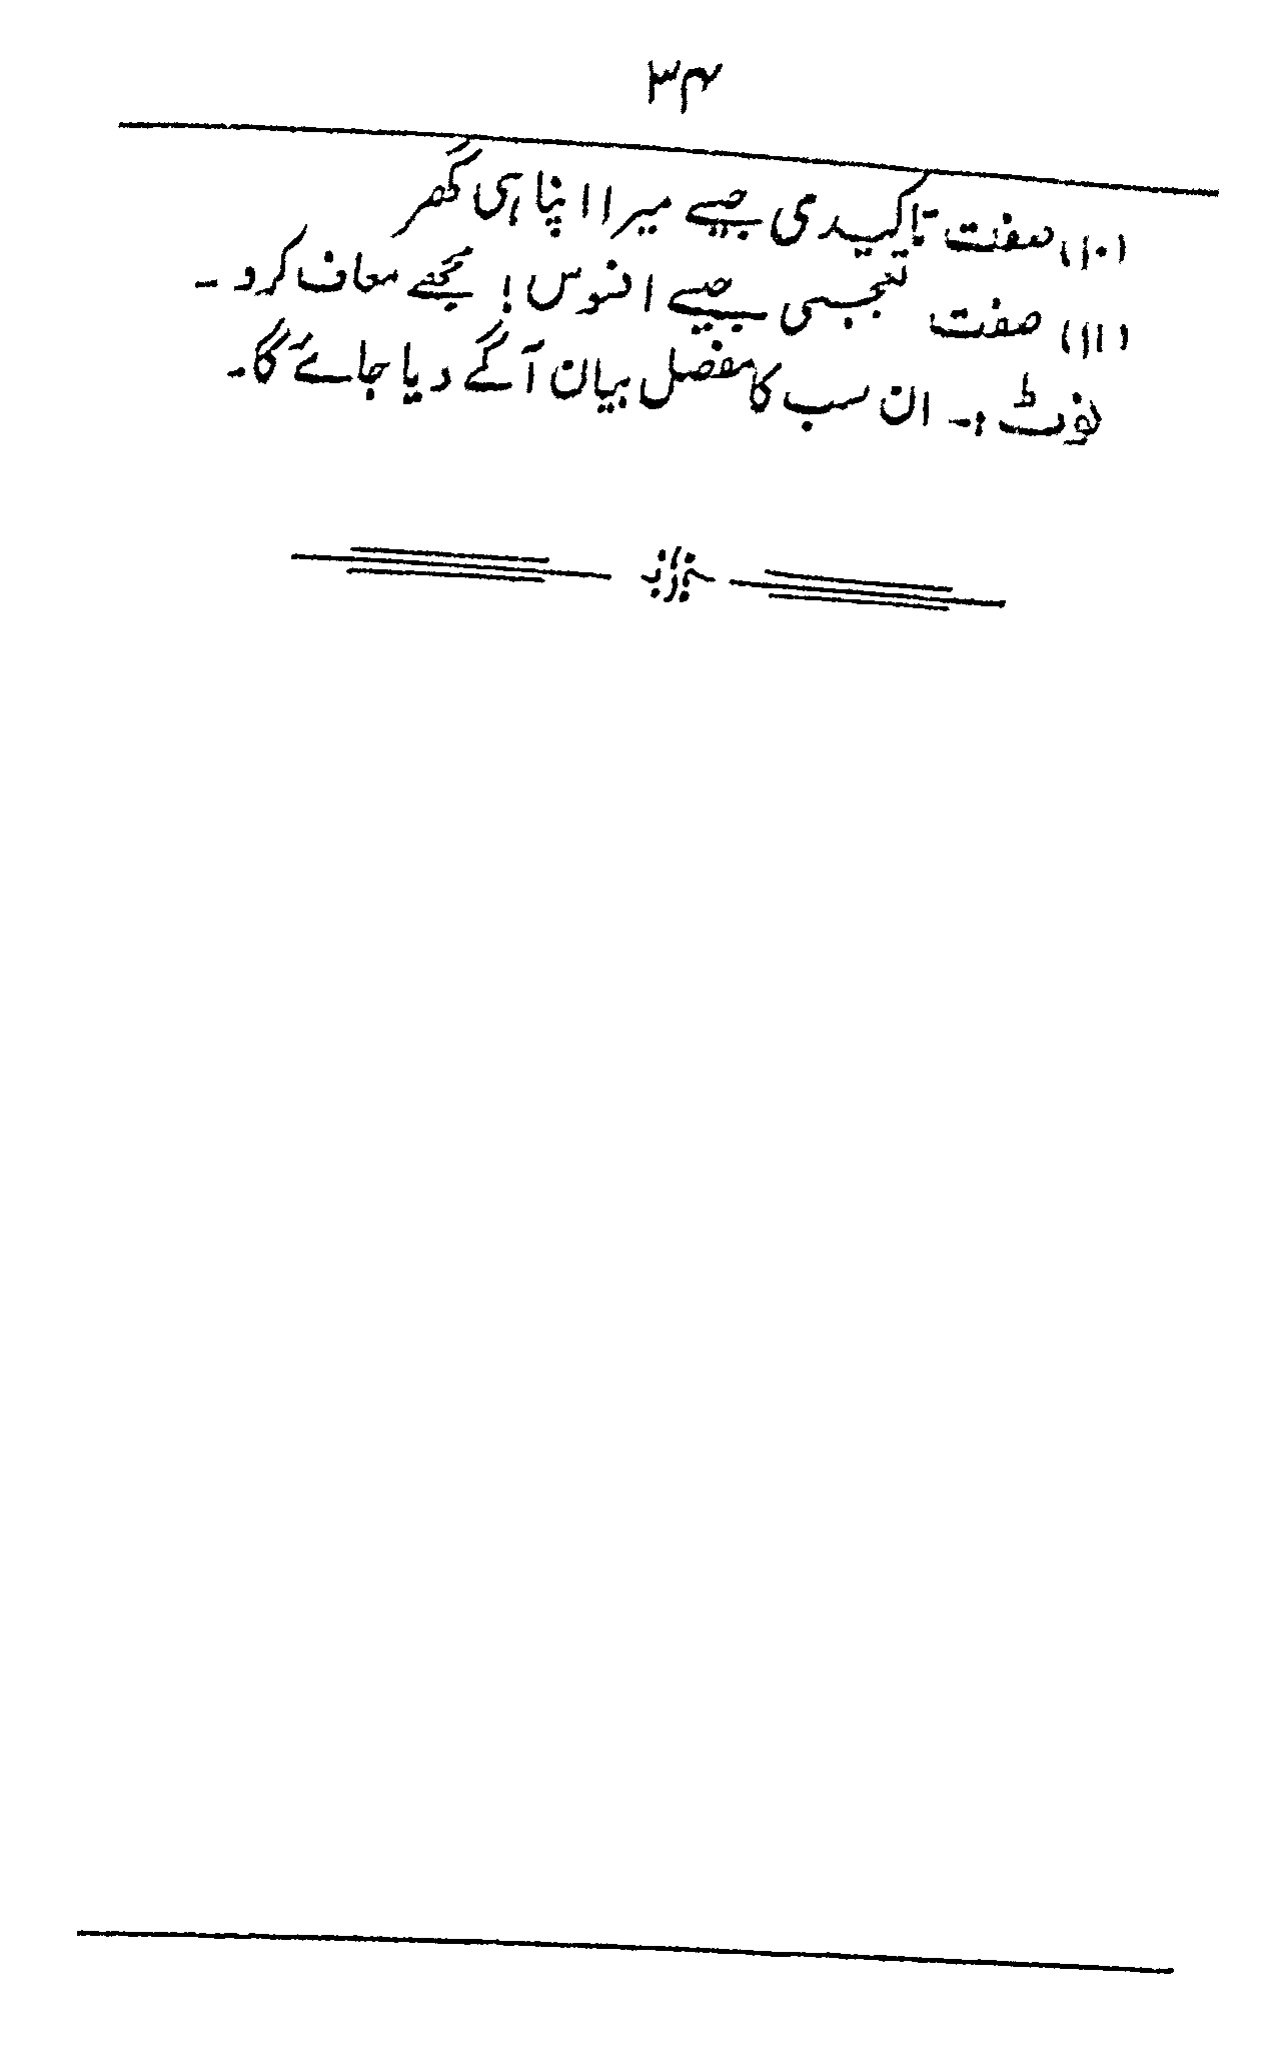 ۳۴
(۱۰) صفت تاکیدی جیسے میرا اپنا ہی گھر
(۱۱) صفت تعجبی جیسے افسوس! مجھے معاف کرو۔
نوٹ :۔ ان سب کا مفصل بیان آگے دیا جائے گا۔